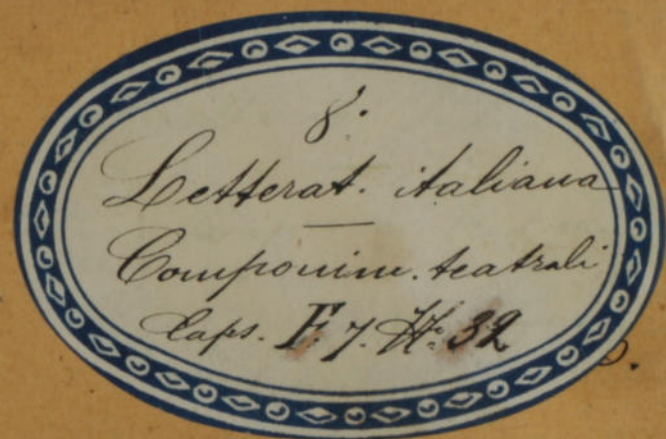 8°:
Letterat. italiana
Componim. teatrali
Caps. F. 7. N° 32